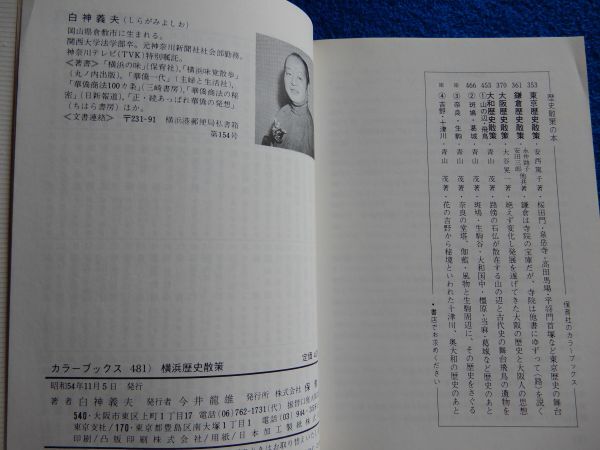 白神義夫(しらがみよしお)
岡山県倉敷市に生まれる。
関西大学法学部卒。元神奈川新聞社社会部勤務。
神奈川テレビ(TVK)特別嘱託。
≪著書≫「横浜の味」(保育社)、「横浜味覚散歩」
(丸ノ内出版)、「華僑一代」(主婦と生活社)、
「華僑商法100カ条」(三崎書房)、「華僑商法の秘
密」(日新報道)、「正・続あっぱれ華僑の発想」
(ちはら書房)ほか。
≪文書連絡≫ 〒231-91 横浜港郵便局私書箱
第154号
カラーブックス 481) 横浜歴史散策
定価
昭和54年11月5日 発行
著者 白神義夫 発行者 今井龍雄 発行所 株式会社 保
540・大阪市東区上町1丁目17 電話 (06)762-1731(代) 振替口座大
東京支社/170・東京都豊島区南大塚1丁目 電話 (03)944-
印刷/凸版印刷株式会社/用紙/日本加工製紙株式
はお取り替えいた
歴史散策の本
保育社のカラーブックス
353 東京歴史散策・安西篤子著・桜田門・泉岳寺・高田馬場・平将門首塚など東京歴史の舞台
361 鎌倉歴史散策・永井路子 安田三郎 他共著・鎌倉は寺院の宝庫だが、寺院は他書にゆずって〈路〉を説く
370 大阪歴史散策・大谷晃一著・絶えず変化し発展を遂げてきた大阪の歴史と大阪人の思想
大和歴史散策
453 ①山の辺・飛鳥・青山 茂著・路傍の石仏が散在する山の辺と古代史の舞台飛鳥の遺物を
466 ②斑鳩・葛城・青山 茂著・斑鳩・生駒谷・大和国中・橿原・当麻・葛城など歴史のあと
③奈良・生駒・青山 茂著・奈良の堂塔、伽藍・風物と生駒周辺に、その歴史をさぐる
④吉野・十津川・青山 茂著・花の吉野から秘境といわれた十津川、奥大和の歴史のあと
・書店でお求めください